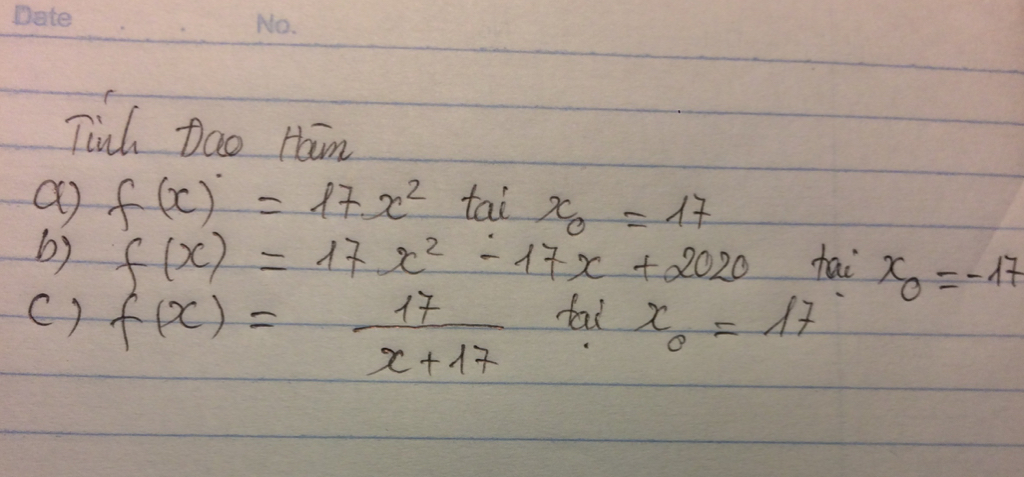 Date No.
Tính Đạo Hàm
a) f(x) = 17x² tại x₀ = 17
b) f(x) = 17x² - 17x + 2020 tại x₀ = -17
c) f(x) = 17/(x+17) tại x₀ = 17